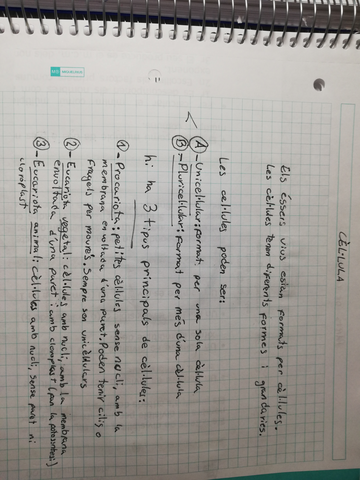 CÈL·LULA
Els éssers vius estan formats per cèl·lules.
Les cèl·lules tenen diferents formes i grandaries.
Les cel·lules poden ser:
A - Unicel·lular: format per una sola cèl·lula
B - Pluricel·lular: Format per més d'una cèl·lula
hi ha 3 tipus principals de cèl·lules:
1 - Procariota: petites cèl·lules sense nucli, amb la
membrana envoltada d'una paret. Poden tenir cilis o
flagels per moure's. Sempre son unicèl·lulars
2 - Eucariota vegetal: cèl·lules amb nucli, amb la membrana
envoltada d'una paret i amb cloroplast (fan la fotosíntesi)
3 - Eucariota animal: cèl·lules amb nucli, sense paret ni
cloroplast